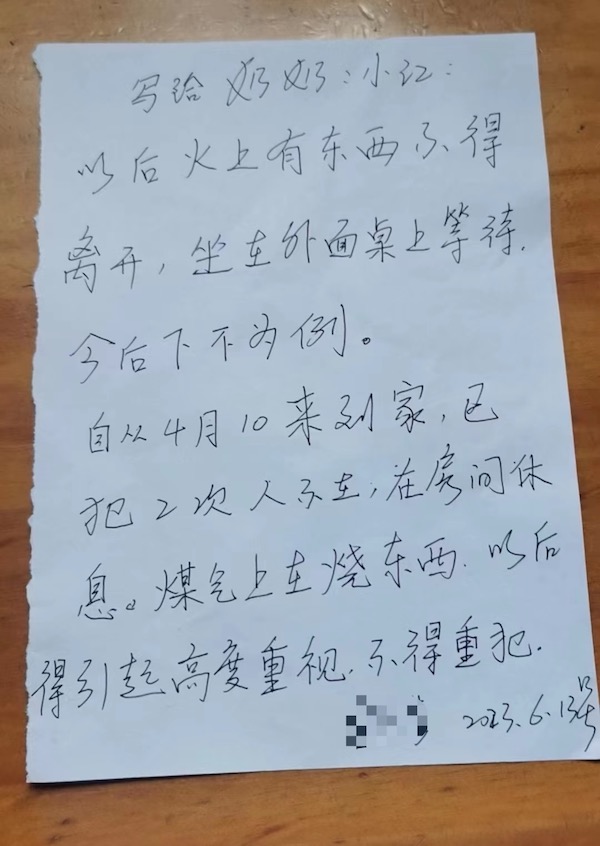 写给 奶奶：小红：
以后火上有东西不得
离开，坐在外面桌上等待.
今后下不为例。
自从4月10来到家，已
犯2次人不在，在房间休
息。煤气上在烧东西. 以后
得引起高度重视.不得重犯.
2023.6.13号